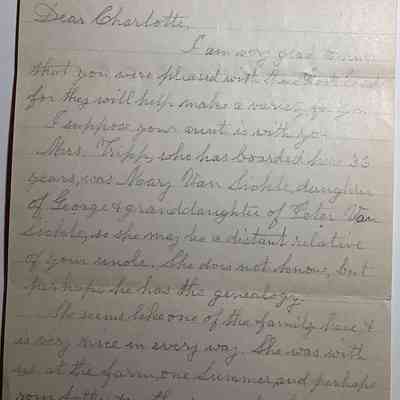 Dear Charlotte,
I am very glad to know
that you were pleased with the
for they will help make a variety for you.
I suppose your aunt is with you.
Mrs. Tripp, who has boarded here 33
years, was Mary Van Sickle, daughter
of George & granddaughter of Peter Van
Sickle, so she may be a distant relative
of your uncle. She does not know, but
perhaps he has the genealogy.
She seems like one of the family here, &
is very nice in every way. She was with
us at the farm, one Summer, and perhaps